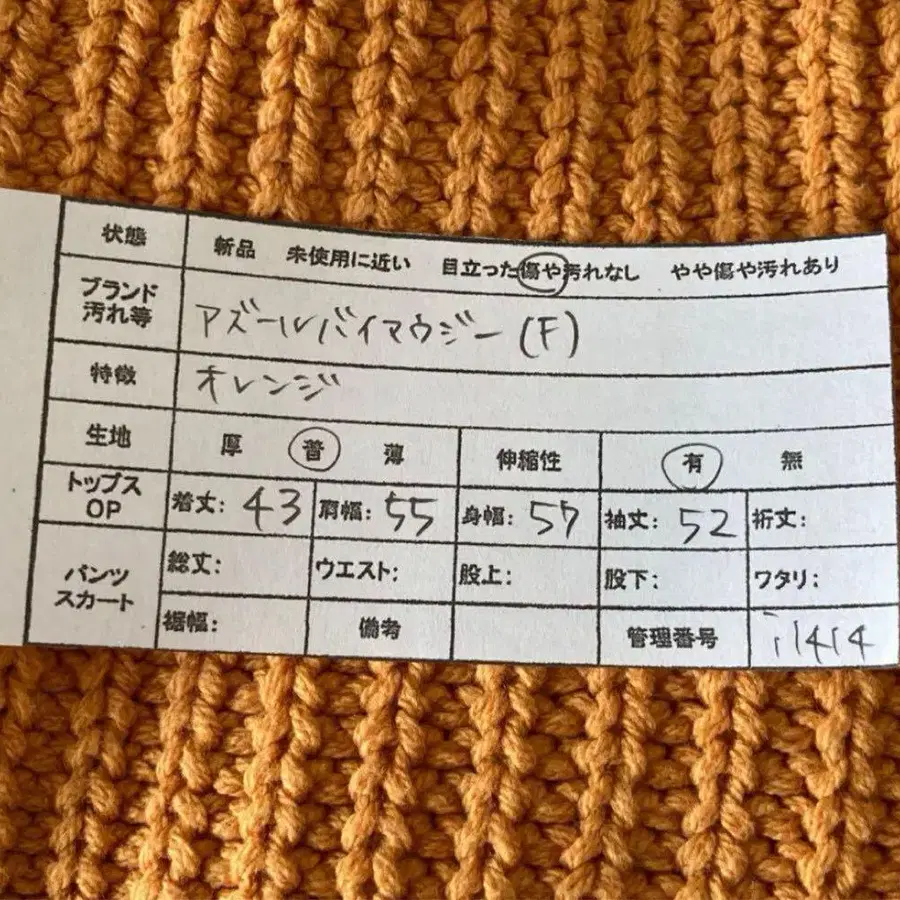 状態 新品 未使用に近い 目立った傷や汚れなし やや傷や汚れあり
ブランド
汚れ等
アズールバイマウジー(F)
特徴 オレンジ
生地 厚 普 薄 伸縮性 有 無
トップス
OP
着丈: 43 肩幅: 55 身幅: 57 袖丈: 52 裄丈:
パンツ
スカート
総丈: ウエスト: 股上: 股下: ワタリ:
裾幅: 備考 管理番号 i1414